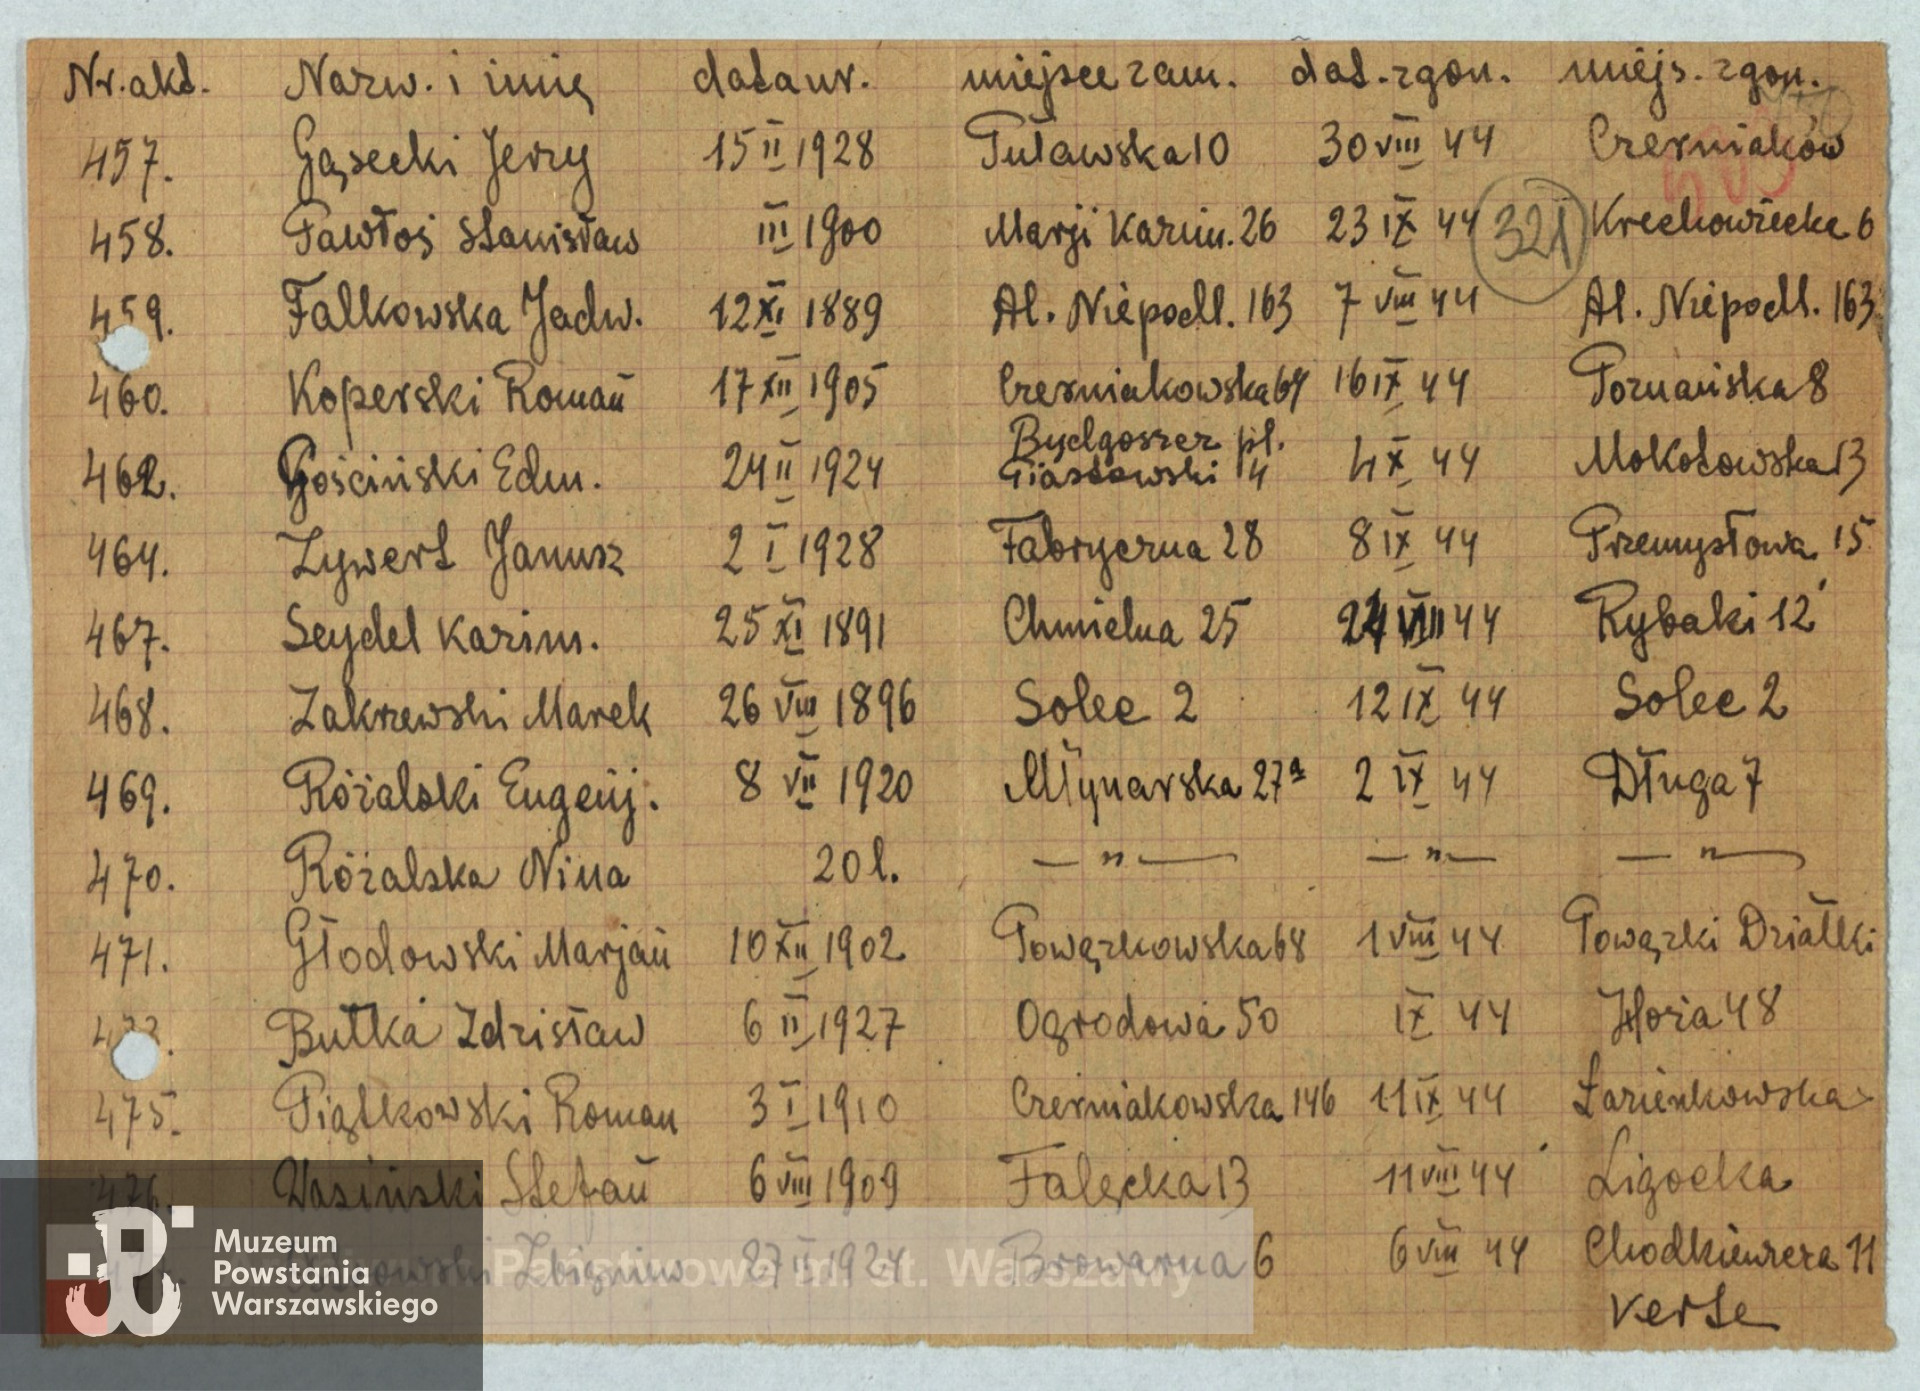 Nr. akt. Nazw. i imię data ur. miejsce zam. dat. zgon. miejs. zgon.
457. Gąsecki Jerzy 15 II 1928 Puławska 10 30 VIII 44 Czerniaków
458. Pawłoś Stanisław III 1900 Marji Kazim. 26 23 IX 44 321 Krechowiecka 6
459. Falkowska Jadw. 12 XI 1889 Al. Niepodl. 163 7 VIII 44 Al. Niepodl. 163
460. Koperski Roman 17 XII 1905 Czerniakowska 64 16 IX 44 Poznańska 8
462. Gościński Edm. 24 II 1924 Bydgoszcz pl. Piastowski 14 4 X 44 Mokotowska 13
464. Zywert Janusz 2 I 1928 Fabryczna 28 8 IX 44 Przemysłowa 15
467. Seydel Kazim. 25 XI 1891 Chmielna 25 24 VIII 44 Rybaki 12
468. Zakrzewski Marek 26 VIII 1896 Solec 2 12 IX 44 Solec 2
469. Różalski Eugenij. 8 VII 1920 Młynarska 27a 2 IX 44 Długa 7
470. Różalska Nina 20 l. — " — — " — — " —
471. Głodowski Marjan 10 XII 1902 Powązkowska 68 1 VIII 44 Powązki Działki
Butka Zdzisław 6 II 1927 Ogrodowa 50 IX 44 Hoża 48
475. Piątkowski Roman 3 I 1910 Czerniakowska 146 11 IX 44 Łazienkowska
476. Wasiński Stefan 6 VIII 1909 Fałęcka 13 11 VIII 44 Ligocka
Zbigniew 27 II 1924 Browarna 6 6 VIII 44 Chodkiewicza 11
verte
Muzeum
Powstania
Warszawskiego
Państwowe m. st. Warszawy